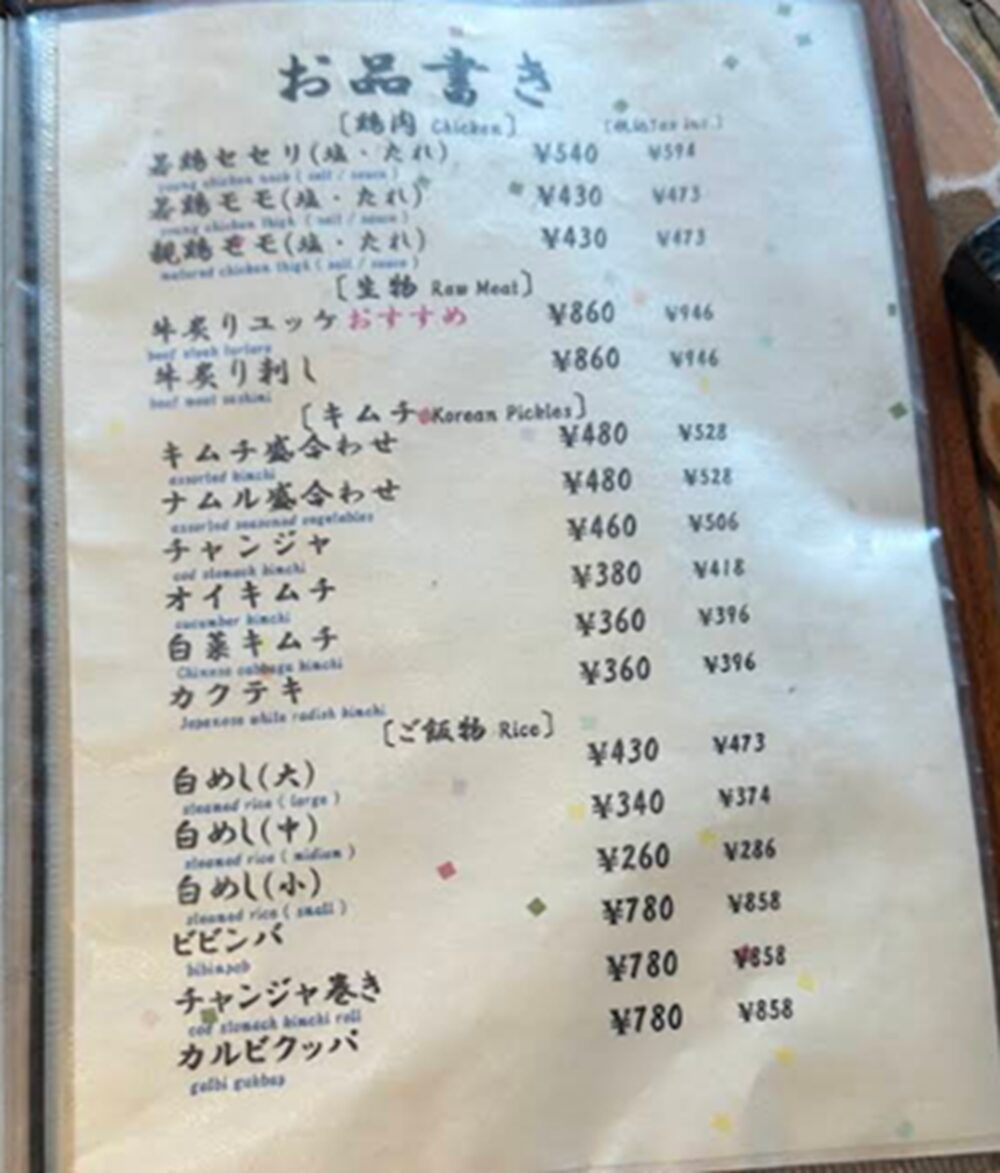 お品書き
[鶏肉 Chicken] (税込Tax inc.)
若鶏セセリ(塩・たれ) ¥540 ¥594
young chicken neck ( salt / sauce )
若鶏モモ(塩・たれ) ¥430 ¥473
young chicken thigh ( salt / sauce )
親鶏モモ(塩・たれ) ¥430 ¥473
matured chicken thigh ( salt / sauce )
[生物 Raw Meat]
牛炙りユッケ おすすめ ¥860 ¥946
beef steak tartare
牛炙り刺し ¥860 ¥946
beef meat sashimi
[キムチ Korean Pickles]
キムチ盛合わせ ¥480 ¥528
assorted kimchi
ナムル盛合わせ ¥480 ¥528
assorted seasoned vegetables
チャンジャ ¥460 ¥506
cod stomach kimchi
オイキムチ ¥380 ¥418
cucumber kimchi
白菜キムチ ¥360 ¥396
Chinese cabbage kimchi
カクテキ ¥360 ¥396
Japanese white radish kimchi
[ご飯物 Rice]
白めし(大) ¥430 ¥473
steamed rice ( large )
白めし(中) ¥340 ¥374
steamed rice ( midium )
白めし(小) ¥260 ¥286
steamed rice ( small )
ビビンバ ¥780 ¥858
チャンジャ巻き ¥780 ¥858
cod stomach kimchi roll
カルビクッパ ¥780 ¥858
galbi gukbap